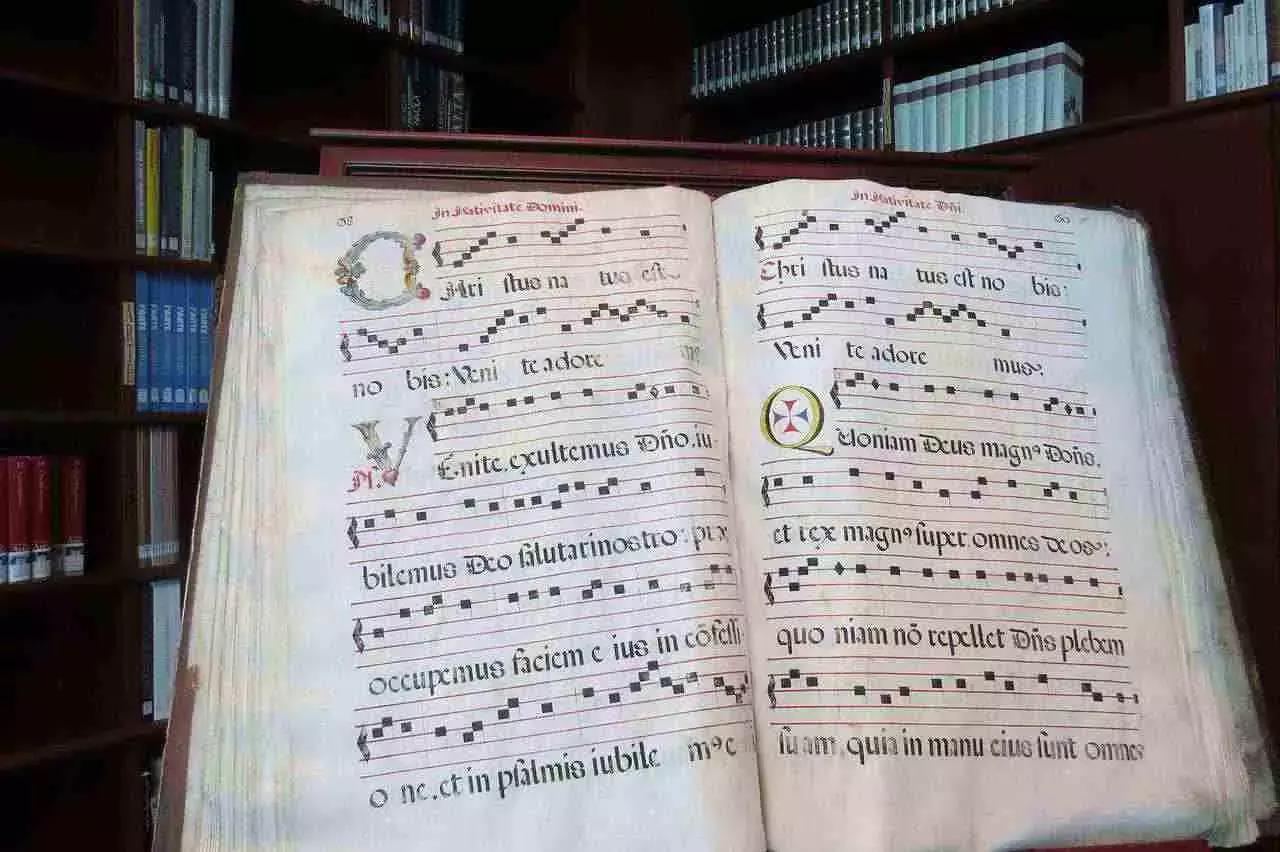 In Nativitate Domini.
Christus natus est
no bis: Veni te adore
Ps.
Venite.exultemus Dño.iu-
bilemus Deo salutari nostro: præ
occupemus faciem e ius in cõfessi-
o ne.et in psalmis iubile mꝰ e
In Nativitate Dñi.
60
Chri stus na tus est no bis:
Veni te adore mus:
Quoniam Deus magnꝰ Doñs.
et rex magnꝰ super omnes deos:
quo niam nõ repellet Dñs plebem
su am.quia in manu eius sunt omnes